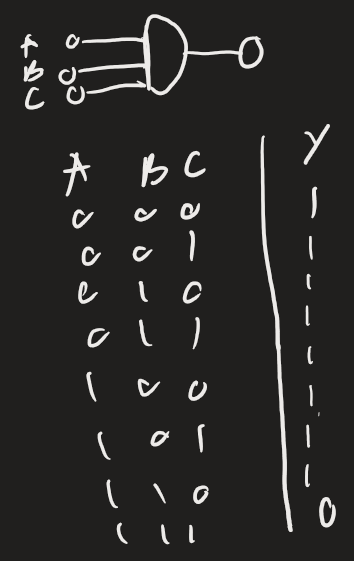 A
B
C
A B C Y
0 0 0 1
0 0 1 1
0 1 0 1
0 1 1 1
1
1 0 0 1
1 0 1 1
1 1 0 1
1 1 1 0